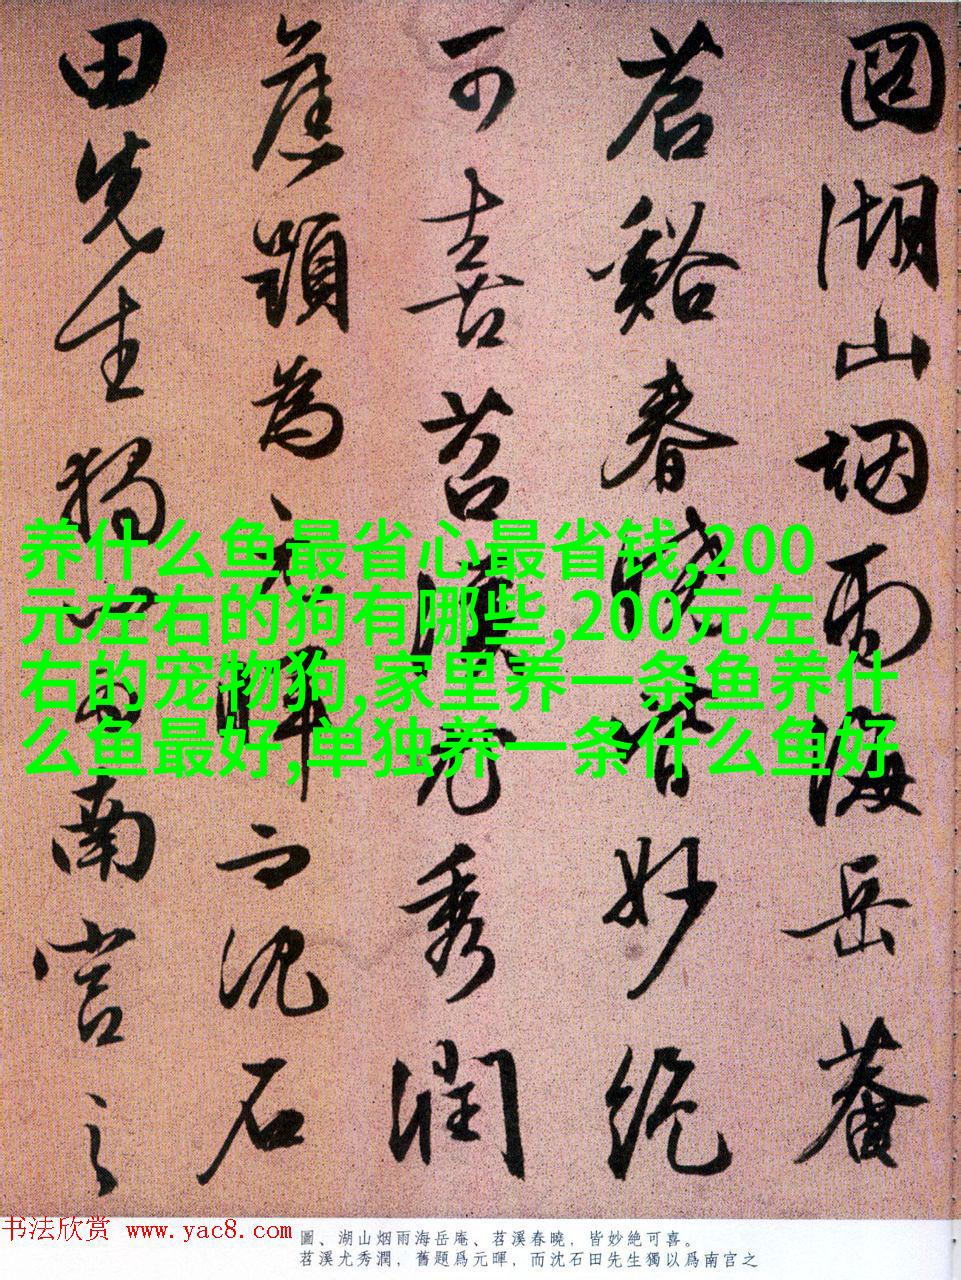 圖湖山烟雨海岳菴
苕谿春曉皆妙絶
可喜苕溪尤秀潤
舊題為元暉而沈石
田先生獨以為南宫之
养什么鱼最省心最省钱,200
元左右的狗有哪些,200元左
右的宠物狗,家里养一条鱼养什
么鱼最好,单独养一条什么鱼好
书法欣赏 www.yac8.com
圖、湖山烟雨海岳庵、苕溪春曉，皆妙絶可喜。
苕溪尤秀潤，舊題爲元暉，而沈石田先生獨以爲南宫之